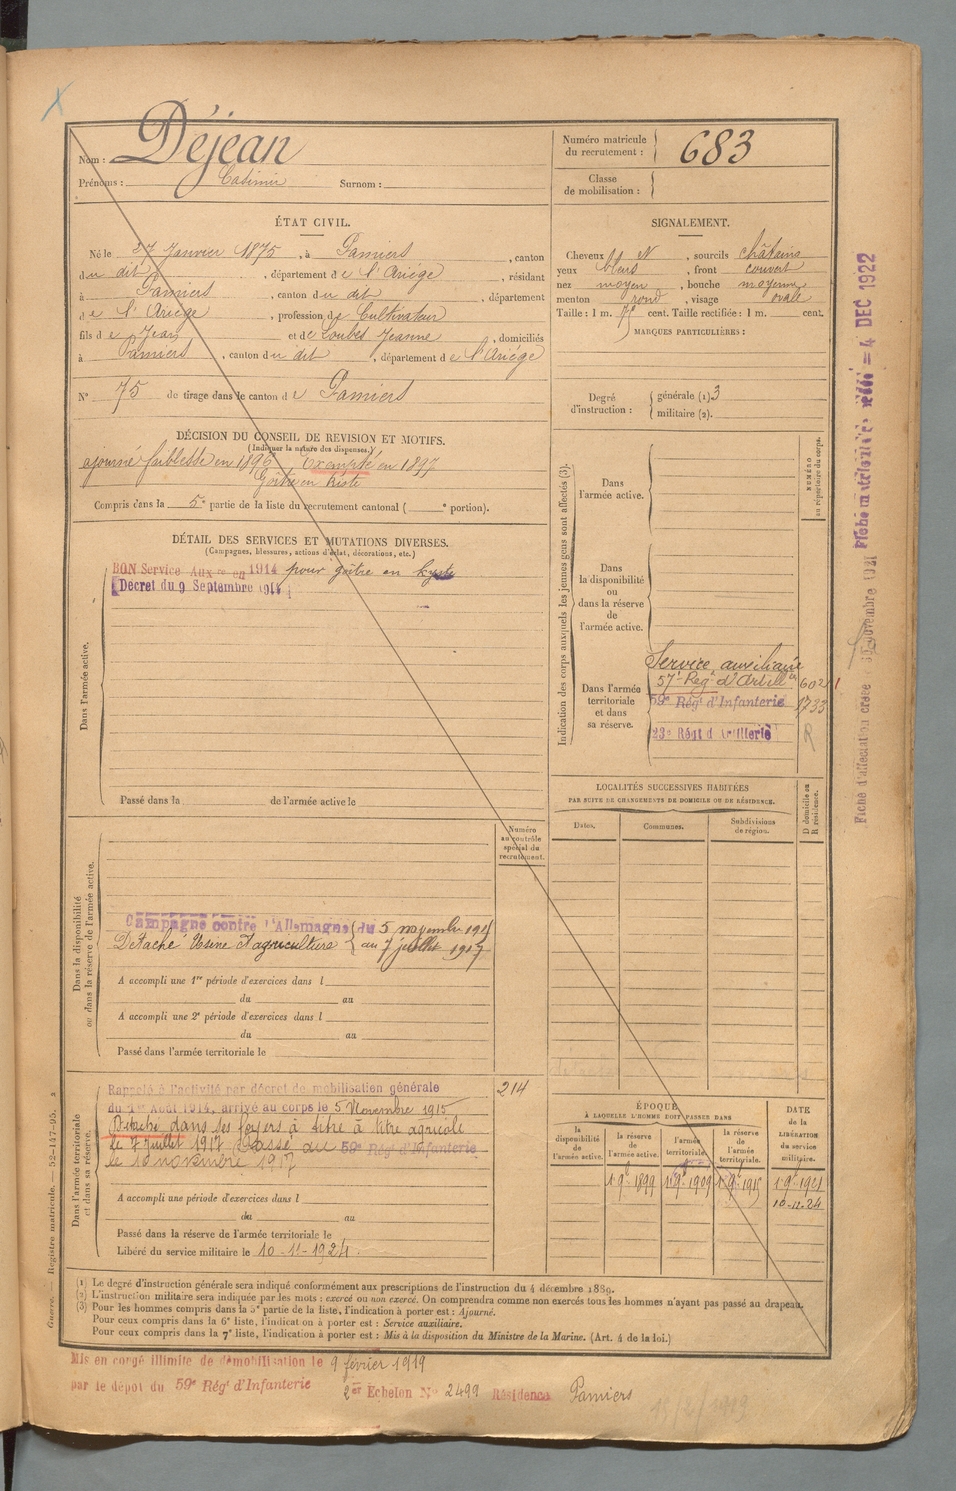 Nom : Déjean
Prénoms : Casimir Surnom :
Numéro matricule du recrutement : 683
Classe de mobilisation :
ÉTAT CIVIL.
Né le 27 Janvier 1875, à Pamiers, canton
du dit, département de l'Ariège, résidant
à Pamiers, canton du dit, département
de l'Ariège, profession de Cultivateur
fils de Jean et de Loubes Jeanne, domiciliés
à Pamiers, canton du dit, département de l'Ariège
N° 75 de tirage dans le canton de Pamiers
SIGNALEMENT.
Cheveux N, sourcils châtains
yeux bleus, front couvert
nez moyen, bouche moyenne
menton rond, visage ovale
Taille : 1 m. 75 cent. Taille rectifiée : 1 m. cent.
MARQUES PARTICULIÈRES :
Degré d'instruction : générale (1) 3
militaire (2).
DÉCISION DU CONSEIL DE REVISION ET MOTIFS.
(Indiquer la nature des dispenses.)
ajourné faiblesse en 1896 Exempté en 1897
Goître en kiste
Compris dans la 5e partie de la liste du recrutement cantonal ( e portion).
DÉTAIL DES SERVICES ET MUTATIONS DIVERSES.
(Campagnes, blessures, actions d'éclat, décorations, etc.)
Dans l'armée active.
BON Service Auxre en 1914 pour goître en kyste
Décret du 9 Septembre 1914
Passé dans la de l'armée active le
Indication des corps auxquels les jeunes gens sont affectés (3).
NUMÉRO au répertoire du corps.
Dans l'armée active.
Dans la disponibilité ou dans la réserve de l'armée active.
Dans l'armée territoriale et dans sa réserve.
Service auxiliaire
57e Régt d'Artillie 602
59e Régt d'Infanterie 1733
23e Régt d'Artillerie R
LOCALITÉS SUCCESSIVES HABITÉES
PAR SUITE DE CHANGEMENTS DE DOMICILE OU DE RÉSIDENCE.
Dates. Communes. Subdivisions de région. D domicile ou R résidence.
Dans la disponibilité ou dans la réserve de l'armée active.
Numéro au contrôle spécial du recrutement.
Campagne contre l'Allemagne du 5 novembre 1915
Détaché Usine Agriculture au 7 juillet 1917
A accompli une 1re période d'exercices dans l
du au
A accompli une 2e période d'exercices dans l
du au
Passé dans l'armée territoriale le
Dans l'armée territoriale et dans sa réserve.
Rappelé à l'activité par décret de mobilisation générale 214
du 1er Août 1914, arrivé au corps le 5 Novembre 1915
Détaché dans ses foyers à titre à titre agricole
le 7 juillet 1917 Passé au 59e Régt d'Infanterie
le 10 novembre 1917
A accompli une période d'exercices dans l
du au
Passé dans la réserve de l'armée territoriale le
Libéré du service militaire le 10-11-1924.
ÉPOQUE
À LAQUELLE L'HOMME DOIT PASSER DANS
la disponibilité de l'armée active. la réserve de l'armée active. l'armée territoriale. la réserve de l'armée territoriale. DATE de la LIBÉRATION du service militaire.
1.9bre 1899 1.9bre 1909 1.9bre 1915 1.9bre 1921
10-11-24
(1) Le degré d'instruction générale sera indiqué conformément aux prescriptions de l'instruction du 4 décembre 1889.
(2) L'instruction militaire sera indiquée par les mots : exercé ou non exercé. On comprendra comme non exercés tous les hommes n'ayant pas passé au drapeau.
(3) Pour les hommes compris dans la 5e partie de la liste, l'indication à porter est : Ajourné.
Pour ceux compris dans la 6e liste, l'indication à porter est : Service auxiliaire.
Pour ceux compris dans la 7e liste, l'indication à porter est : Mis à la disposition du Ministre de la Marine. (Art. 4 de la loi.)
Mis en congé illimité de démobilisation le 9 février 1919
par le dépôt du 59e Régt d'Infanterie 2er Echelon N° 2499 Résidence Pamiers
13/2/1919
Guerre. — Registre matricule. — 52-147-95.
Fiche d'affectation créée 30 novembre 1921 Fiche matricule = 4 DEC 1922